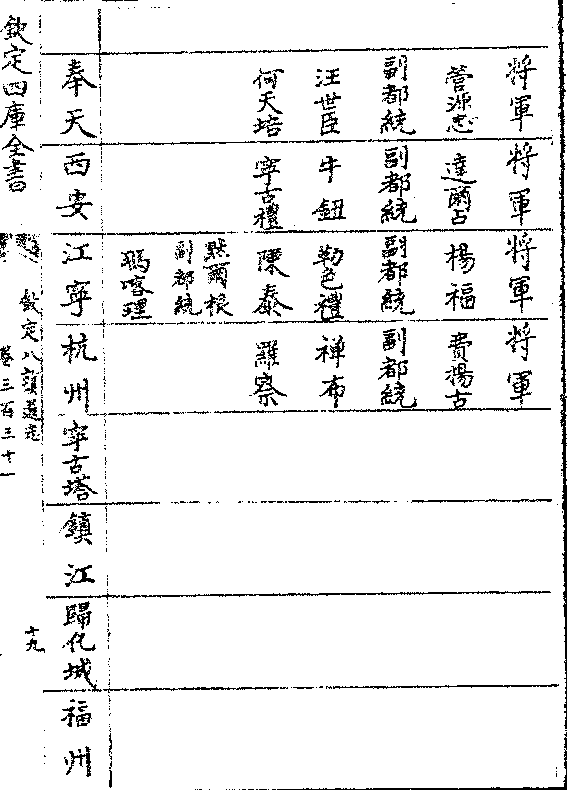 將軍
管源忠
副都統
汪世臣
何天培
將軍
達爾占
副都統
牛鈕
寧古禮
將軍
楊福
副都統
勒色禮
陳泰
黙爾根
副都統
瑪喀理
將軍
費揚古
副都統
禅布
羅察
奉天
西安
江寧
杭州
寧古塔
鎮江
歸化城
福州
欽定四庫全書
欽定八旗通志
卷三百三十一
十九